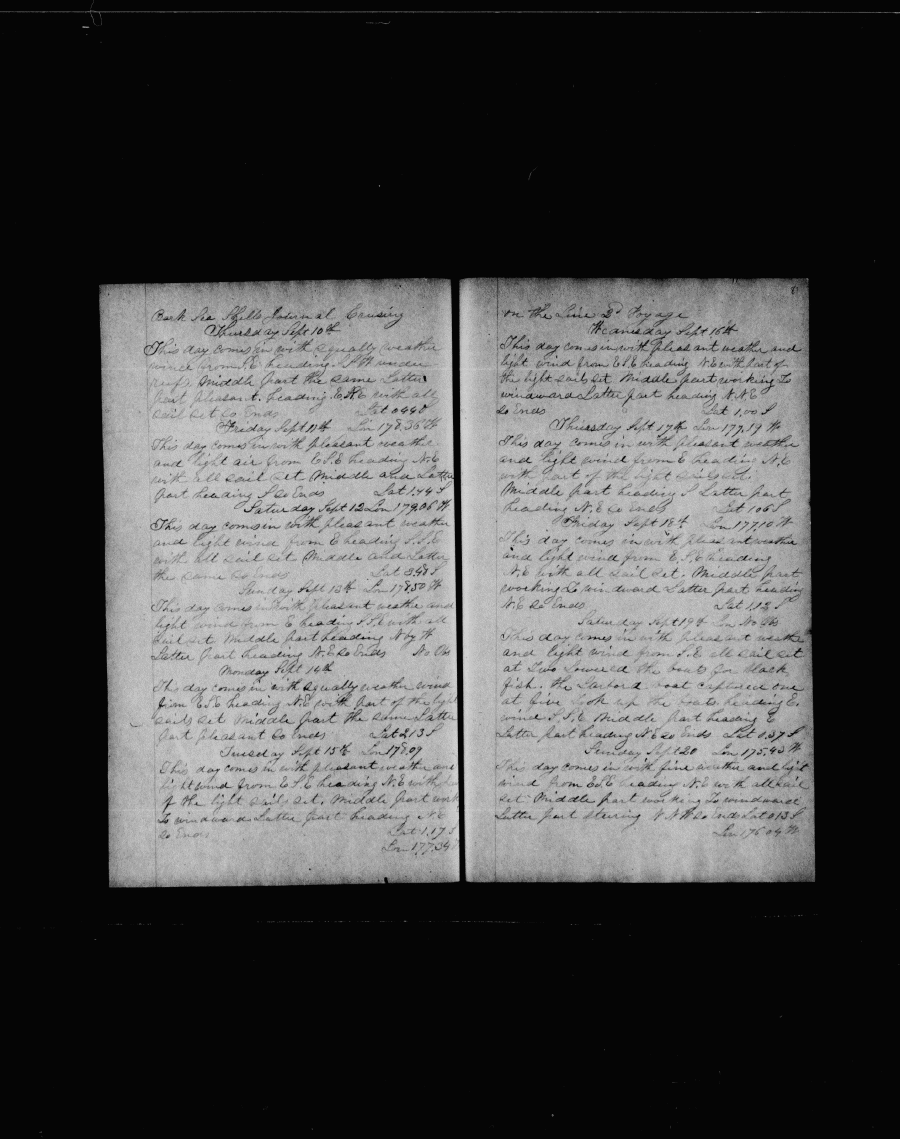 Bark Sea Shells Internal Cruising
Thursday Sept 10th
This day comes in with squally weather
wind from S.E. heading S W under
reefs Middle part the same Latter
part pleasant. heading E.N.E with all
sail set So Ends Lat 0440
Friday Sept 11th Lon 178,36 W
This day comes in with pleasant weather
and light air from E S.E heading N.E
with all sail set Middle and Latter
part heading S So Ends Lat 1.44 S
Saturday Sept 12 Lon 179,06 W
This day comes in with pleasant weather
and light wind from E heading S.S.E
with all sail set. Middle and Latter
the same So Ends Lat 348 S
Sunday Sept 13th Lon 178,50 W
This day comes in with pleasant weather and
light wind from E heading S.S.E with all
sail set Middle part heading N by W
Latter part heading N.E So Ends No Obs
Monday Sept 14th
This day comes in with squally weather wind
from E.S.E heading N.E with part of the light
sails set Middle part the same Latter
part pleasant So Ends Lat 2,13 S
Tuesday Sept 15th Lon 178,09
This day comes in with pleasant weather and
light wind from E S E heading N.E with part
of the light sails set, Middle part work
to windward Latter part heading N.E
So Ends Lat 1,17 S
Lon 177,34
on the Line 2d Voyage
Wednesday Sept 16th
This day comes in with pleasant weather and
light wind from E S.E heading N.E with part of
the light sails set Middle part working To
windward Latter part heading N.N.E
So Ends Lat 1,00 S
Thursday Sept 17th Lon 177,19 W
This day comes in with pleasant weather
and light wind from E heading N.E
with part of the light sails set
Middle part heading S Latter part
heading N.E So Ends Lat 106 S
Friday Sept 18th Lon 177,10 W
This day comes in with pleasant weather
and light wind from E.S.E heading
N.E with all sail set. Middle part
working to windward Latter part heading
N.E So Ends Lat 1,12 S
Saturday Sept 19th Lon No Obs
This day comes in with pleasant weather
and light wind from S.E all sail set
at Two Lowered the boats for black
fish. the Larbord boat captured one
at five Took up the boats heading E.
wind S.S.E Middle part heading E
Latter part heading N.E So Ends Lat 0,37 S
Sunday Sept 20 Lon 175,43 W
This day comes in with fine weather and light
wind from E.S.E heading N.E with all sail
set. Middle part working To windward
Latter part Steering N.N.W So Ends Lat 013 S
Lon 176,04 W